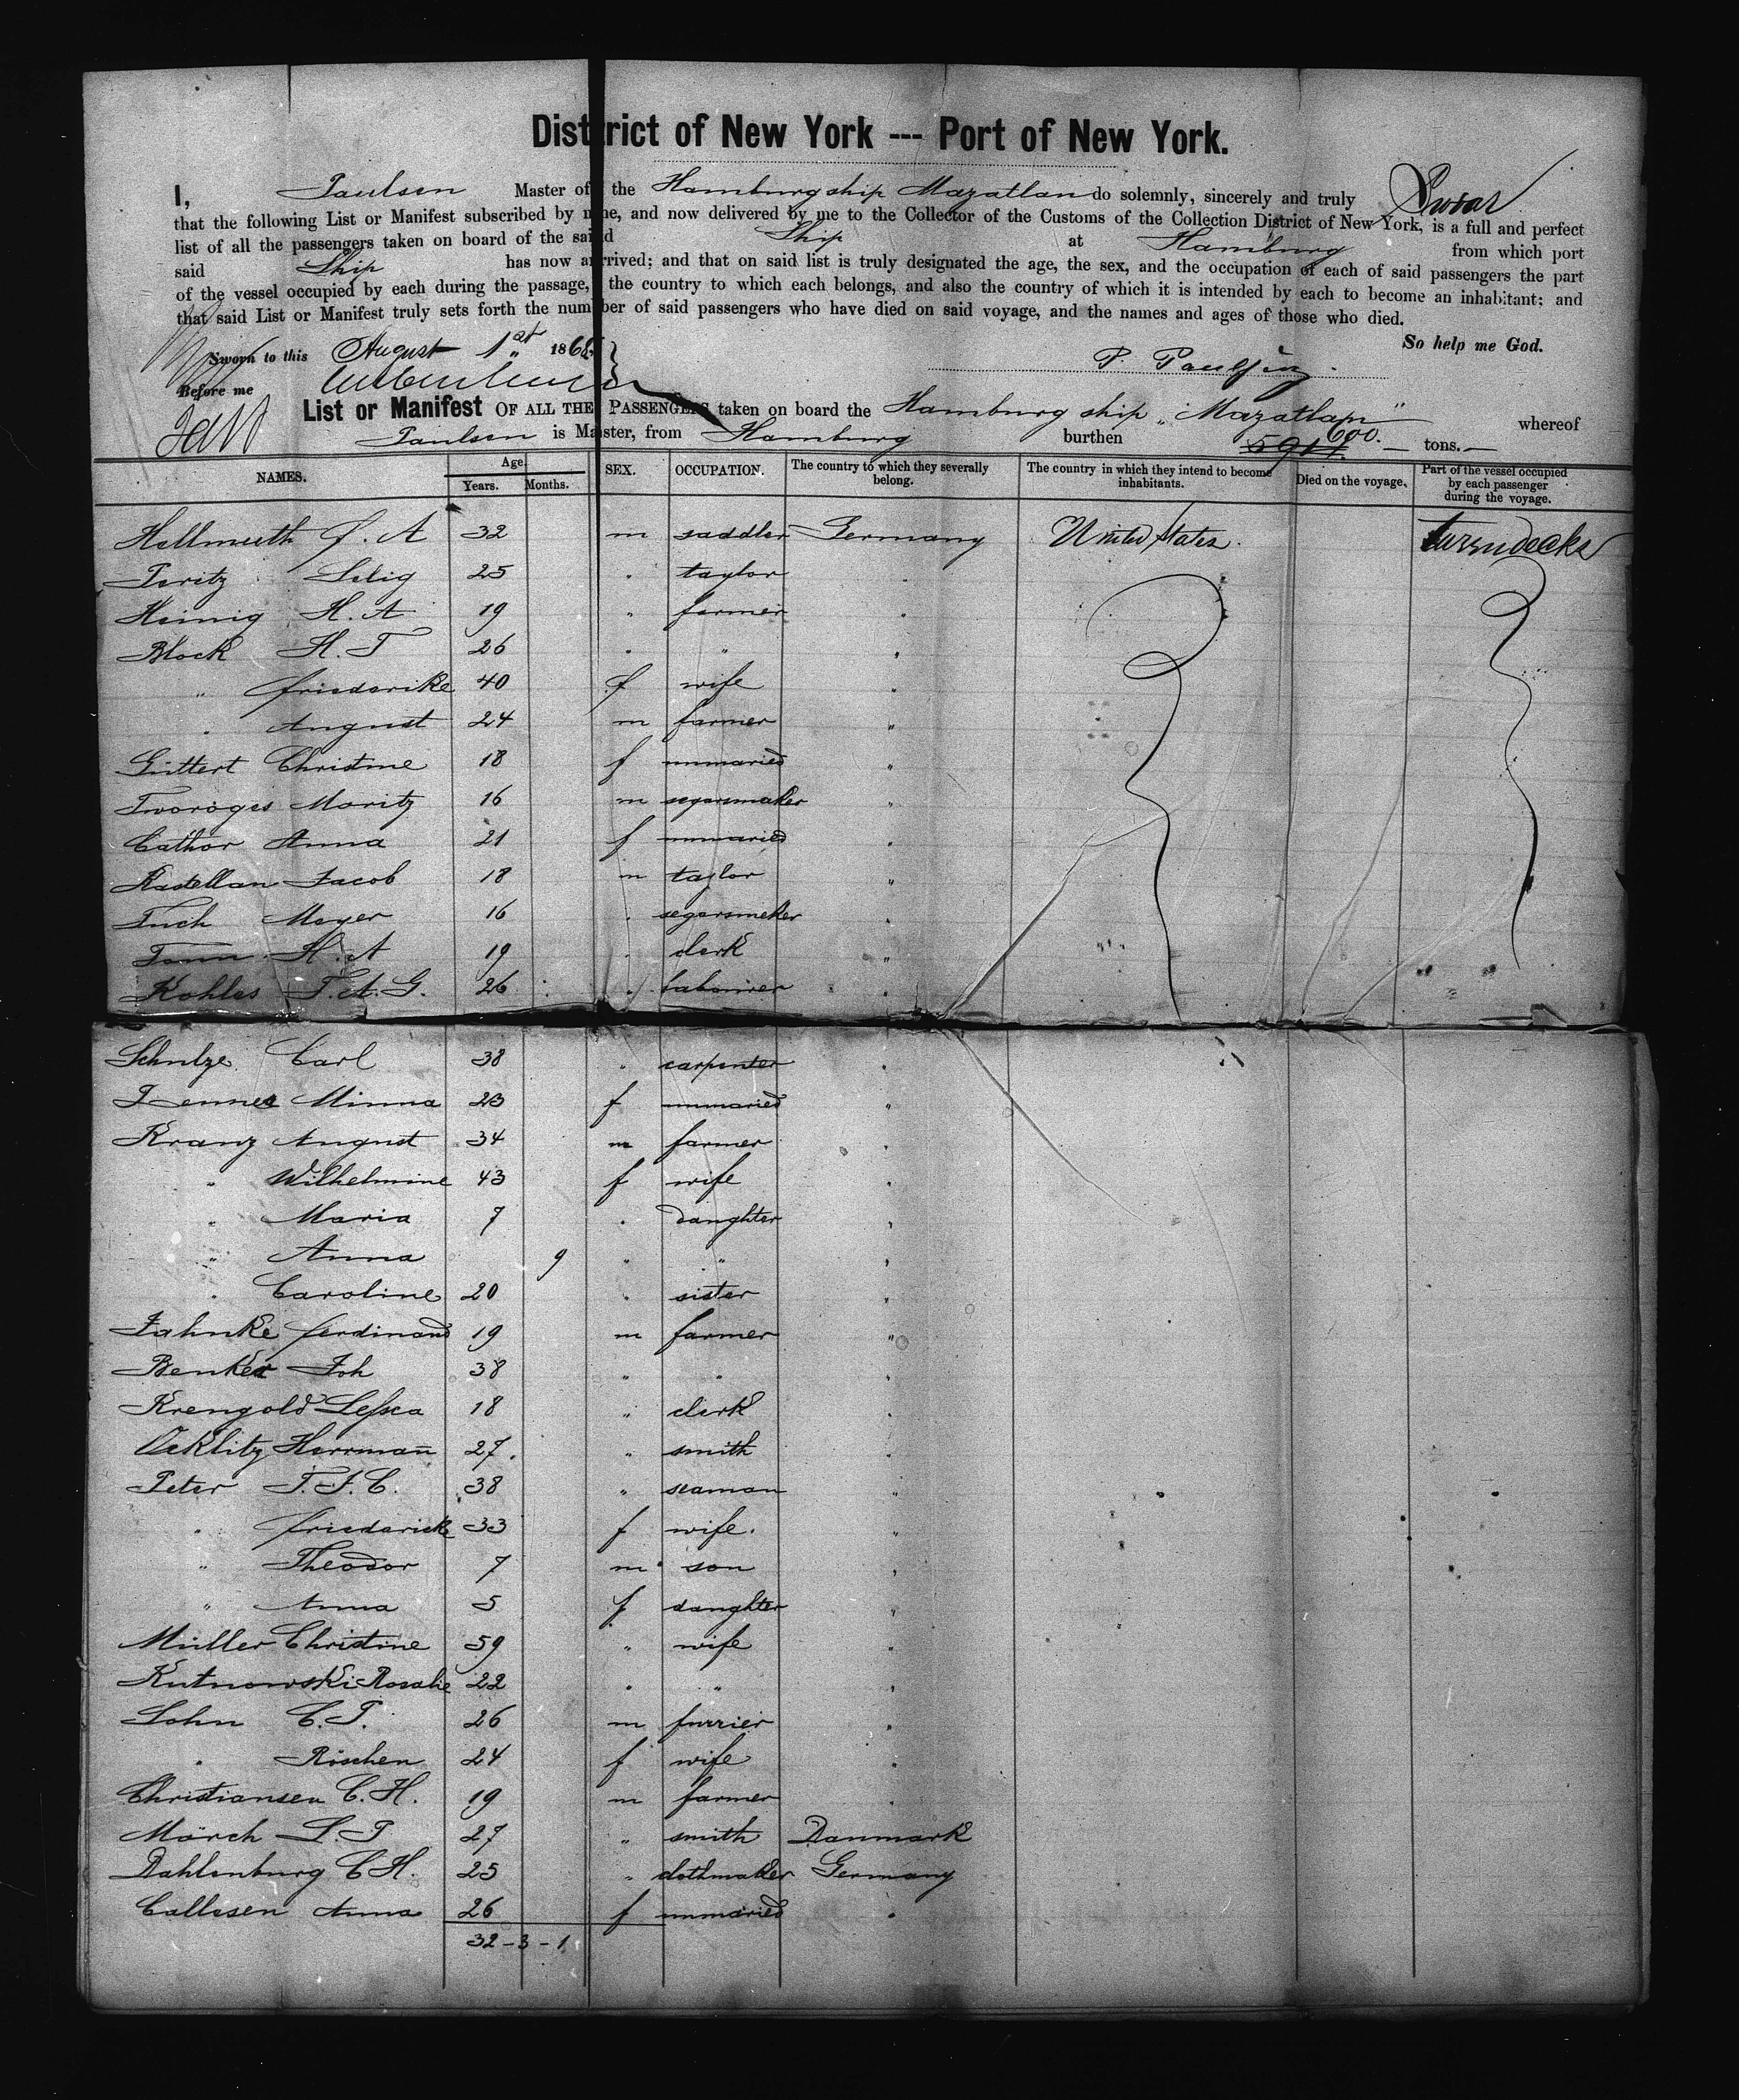 District of New York --- Port of New York.
I, Paulsen Master of the Hamburg ship Mazatlan do solemnly, sincerely and truly Swear
that the following List or Manifest subscribed by me, and now delivered by me to the Collector of the Customs of the Collection District of New York, is a full and perfect
list of all the passengers taken on board of the said Ship at Hamburg from which port
said Ship has now arrived; and that on said list is truly designated the age, the sex, and the occupation of each of said passengers the part
of the vessel occupied by each during the passage, the country to which each belongs, and also the country of which it is intended by each to become an inhabitant; and
that said List or Manifest truly sets forth the number of said passengers who have died on said voyage, and the names and ages of those who died.
So help me God.
Sworn to this August 1st 1868
P. Paulsen
Before me
List or Manifest OF ALL THE PASSENGERS taken on board the Hamburg ship "Mazatlan" whereof
Paulsen is Master, from Hamburg burthen 600. tons.
NAMES. Age. Years. Months. SEX. OCCUPATION. The country to which they severally belong. The country in which they intend to become inhabitants. Died on the voyage. Part of the vessel occupied by each passenger during the voyage.
Hellmuth F. A 32 m saddler Germany United States
Peritz Selig 25 " taylor "
Heinig H. A 19 " farmer "
Block H. T 26 " " "
" friederike 40 f wife "
" August 24 m farmer "
Güttert Christine 18 f unmaried "
Tworoges Moritz 16 m segarsmaker "
Cathor Anna 21 f unmaried "
Kastellan Jacob 18 m taylor "
Tuch Meyer 16 " segarsmeker "
H. A 19 " clerk "
Kohles T. A. G. 26 " labourer "
Schulze Carl 38 " carpenter "
Minna 23 f unmaried "
Kranz August 34 m farmer "
" Wilhelmine 43 f wife "
" Maria 7 " daughter "
" Anna 9 " " "
" Caroline 20 " sister "
Jahnke ferdinand 19 m farmer "
Benker Joh 38 " " "
Krengold 18 " clerk "
Oeklitz Herrmann 27. " smith "
Peter T. J. C. 38 " seaman "
" friederick 33 f wife. "
" Theodor 7 m son "
" Anna 5 f daughter "
Müller Christine 59 " wife "
Kutnowski Rosalie 22 " " "
Sohn C. T. 26 m furrier "
" Röschen 24 f wife "
Christiansen C. H. 19 m farmer "
Mörch L. T 27 " smith Danmark
Dahlenburg C H. 25 " clothmaker Germany
Callesen Anna 26 f unmaried "
32 - 3 - 1